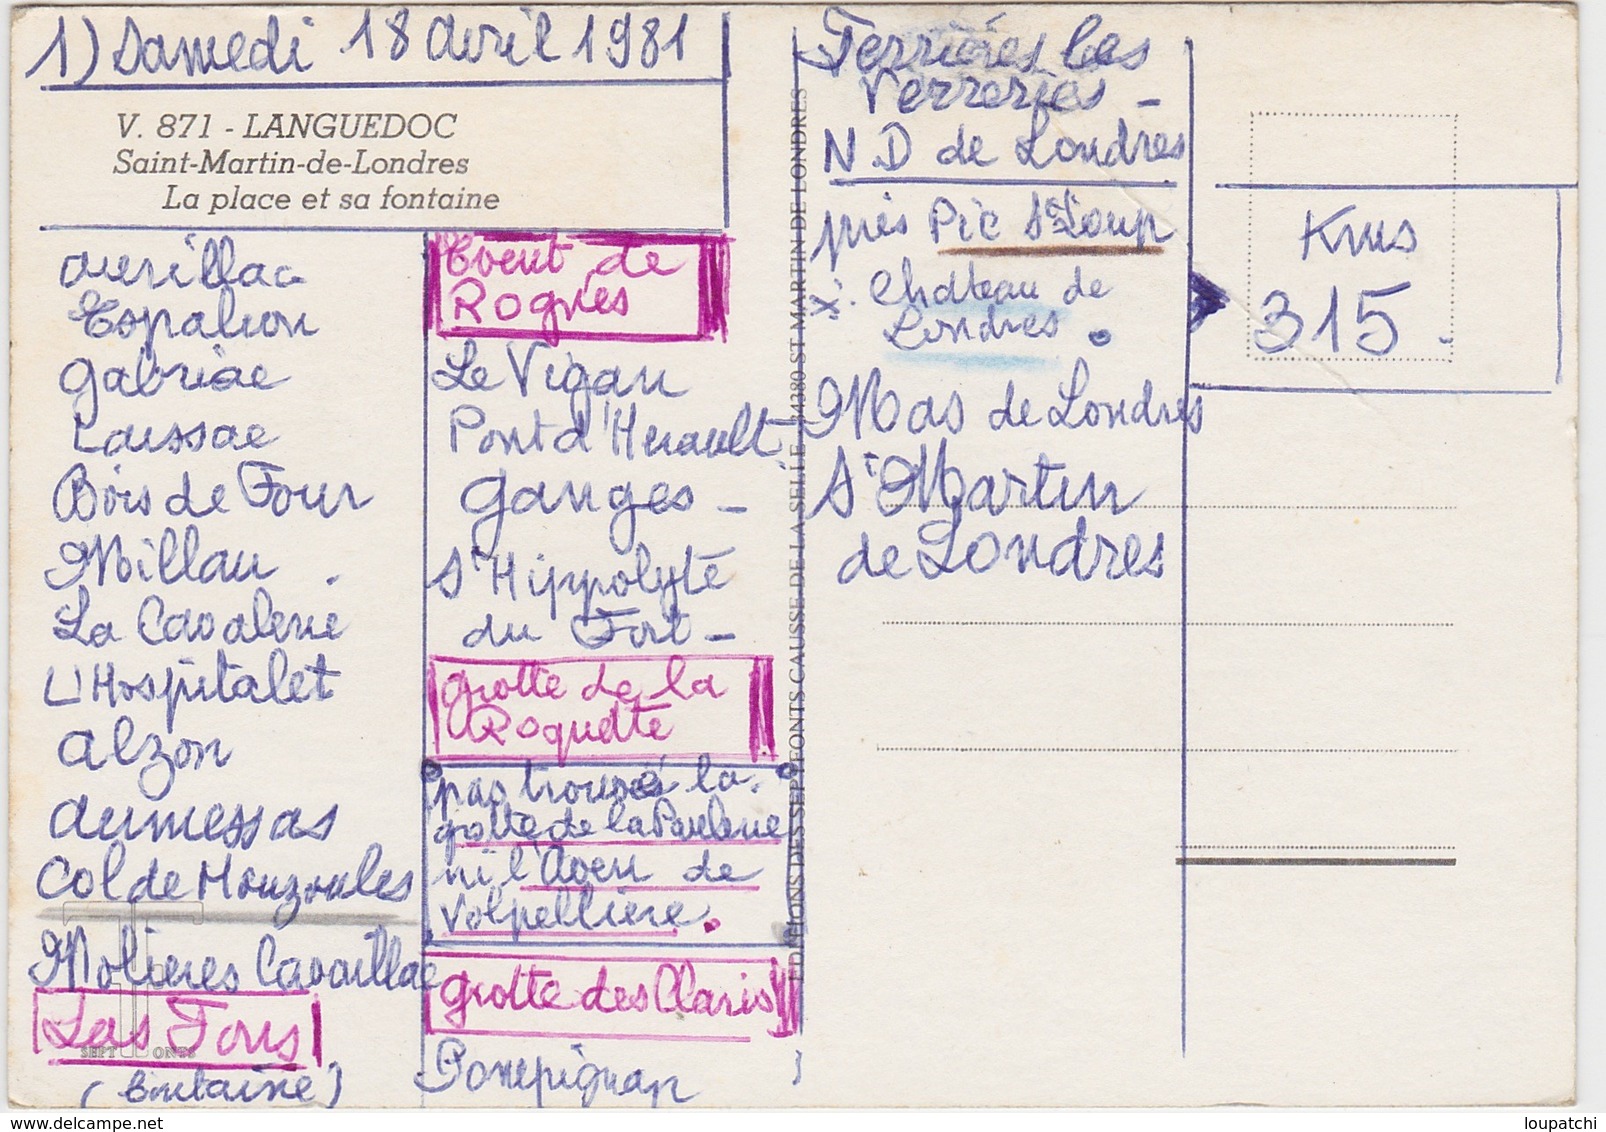 1) Samedi 18 avril 1981
V. 871 - LANGUEDOC
Saint-Martin-de-Londres
La place et sa fontaine
aurillac
Espalion
gabriac
Laissac
Bois de Four
Millau .
La Cavalerie
L'Hospitalet
alzon
aumessas
Col de Mouzoules
Molières Cavaillac
Las Fous
(fontaine)
SEPT FONTS
Event de
Rogues
Le Vigan
Pont d'Herault
ganges -
St Hippolyte
du Fort -
grotte de la
Roquette
pas trouvé la
grotte de la Paulerie
ni l'Aven de
Volpellière.
grotte des Claris
Pompignan
EDITIONS DES SEPT FONTS CAUSSE DE LA SELLE 34380 ST MARTIN DE LONDRES
Ferrières les
Verreries -
N.D de Londres
près Pic St Loup
X. Château de
Londres .
Mas de Londres
St Martin
de Londres
Kms
315.
loupatchi